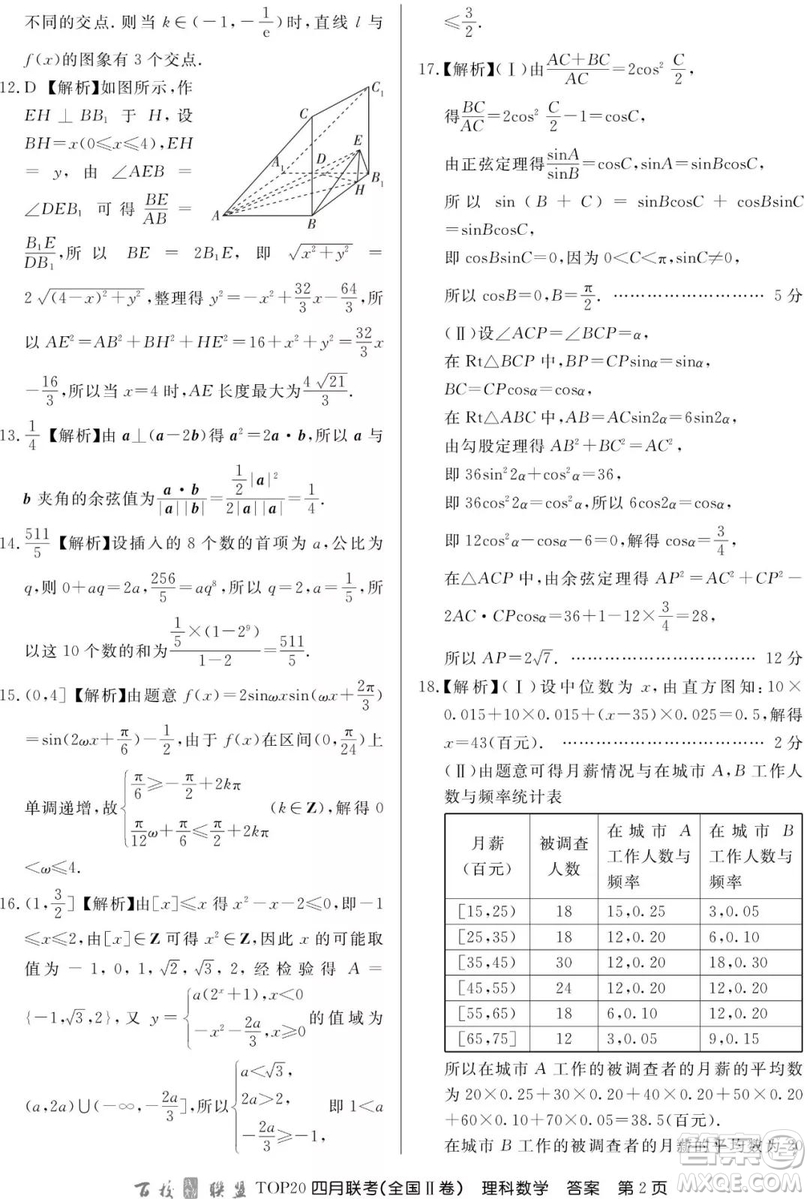 不同的交点. 则当 k∈(-1,-1/e)时,直线 l 与
f(x)的图象有 3 个交点.
12. D 【解析】如图所示,作
EH ⊥ BB₁ 于 H,设
BH=x(0≤x≤4),EH
= y, 由 ∠AEB =
∠DEB₁ 可得 BE/AB =
B₁E/DB₁,所以 BE = 2B₁E, 即 √(x²+y²) =
2√((4-x)²+y²),整理得 y²=-x²+32/3 x-64/3,所
以 AE²=AB²+BH²+HE²=16+x²+y²=32/3 x
-16/3,所以当 x=4 时,AE 长度最大为 4√21/3.
A B C D E H A₁ B₁ C₁
13. 1/4 【解析】由 a⊥(a-2b)得 a²=2a·b,所以 a 与
b 夹角的余弦值为 a·b/|a||b| = 1/2|a|²/2|a||a| = 1/4.
14. 511/5 【解析】设插入的 8 个数的首项为 a,公比为
q,则 0+aq=2a,256/5=aq⁸,所以 q=2,a=1/5,所
以这 10 个数的和为 1/5×(1-2⁹)/1-2 = 511/5.
15. (0,4] 【解析】由题意 f(x)=2sinωxsin(ωx+2π/3)
=sin(2ωx+π/6)-1/2,由于 f(x)在区间(0,π/24)上
单调递增,故{π/6≥-π/2+2kπ π/12 ω+π/6≤π/2+2kπ (k∈Z),解得 0
<ω≤4.
16. (1,3/2] 【解析】由[x]≤x 得 x²-x-2≤0,即-1
≤x≤2,由[x]∈Z 可得 x²∈Z,因此 x 的可能取
值为 -1,0,1,√2,√3,2,经检验得 A =
{-1,√3,2},又 y={a(2ˣ+1),x<0 -x²-2a/3,x≥0 的值域为
(a,2a)∪(-∞,-2a/3],所以{a<√3, 2a>2, -2a/3≥-1, 即 1<a
≤3/2.
17.【解析】(Ⅰ)由AC+BC/AC=2cos² C/2,
得BC/AC=2cos² C/2-1=cosC,
由正弦定理得sinA/sinB=cosC,sinA=sinBcosC,
所以 sin(B + C) = sinBcosC + cosBsinC
=sinBcosC,
即 cosBsinC=0,因为 0<C<π,sinC≠0,
所以 cosB=0,B=π/2. ………………………… 5 分
(Ⅱ)设∠ACP=∠BCP=α,
在 Rt△BCP 中,BP=CPsinα=sinα,
BC=CPcosα=cosα,
在 Rt△ABC 中,AB=ACsin2α=6sin2α,
由勾股定理得 AB²+BC²=AC²,
即 36sin²2α+cos²α=36,
即 36cos²2α=cos²α,所以 6cos2α=cosα,
即 12cos²α-cosα-6=0,解得 cosα=3/4,
在△ACP 中,由余弦定理得 AP²=AC²+CP²-
2AC·CPcosα=36+1-12×3/4=28,
所以 AP=2√7. ……………………………… 12 分
18.【解析】(Ⅰ)设中位数为 x,由直方图知:10×
0.015+10×0.015+(x-35)×0.025=0.5,解得
x=43(百元). ……………………………… 2 分
(Ⅱ)由题意可得月薪情况与在城市 A,B 工作人
数与频率统计表
月薪(百元) 被调查人数 在城市 A 工作人数与频率 在城市 B 工作人数与频率
[15,25) 18 15,0.25 3,0.05
[25,35) 18 12,0.20 6,0.10
[35,45) 30 12,0.20 18,0.30
[45,55) 24 12,0.20 12,0.20
[55,65) 18 6,0.10 12,0.20
[65,75] 12 3,0.05 9,0.15
所以在城市 A 工作的被调查者的月薪的平均数
为 20×0.25+30×0.20+40×0.20+50×0.20
+60×0.10+70×0.05=38.5(百元).
在城市 B 工作的被调查者的月薪的平均数为 20
百校联盟 TOP20 四月联考(全国Ⅱ卷) 理科数学 答案 第 2 页